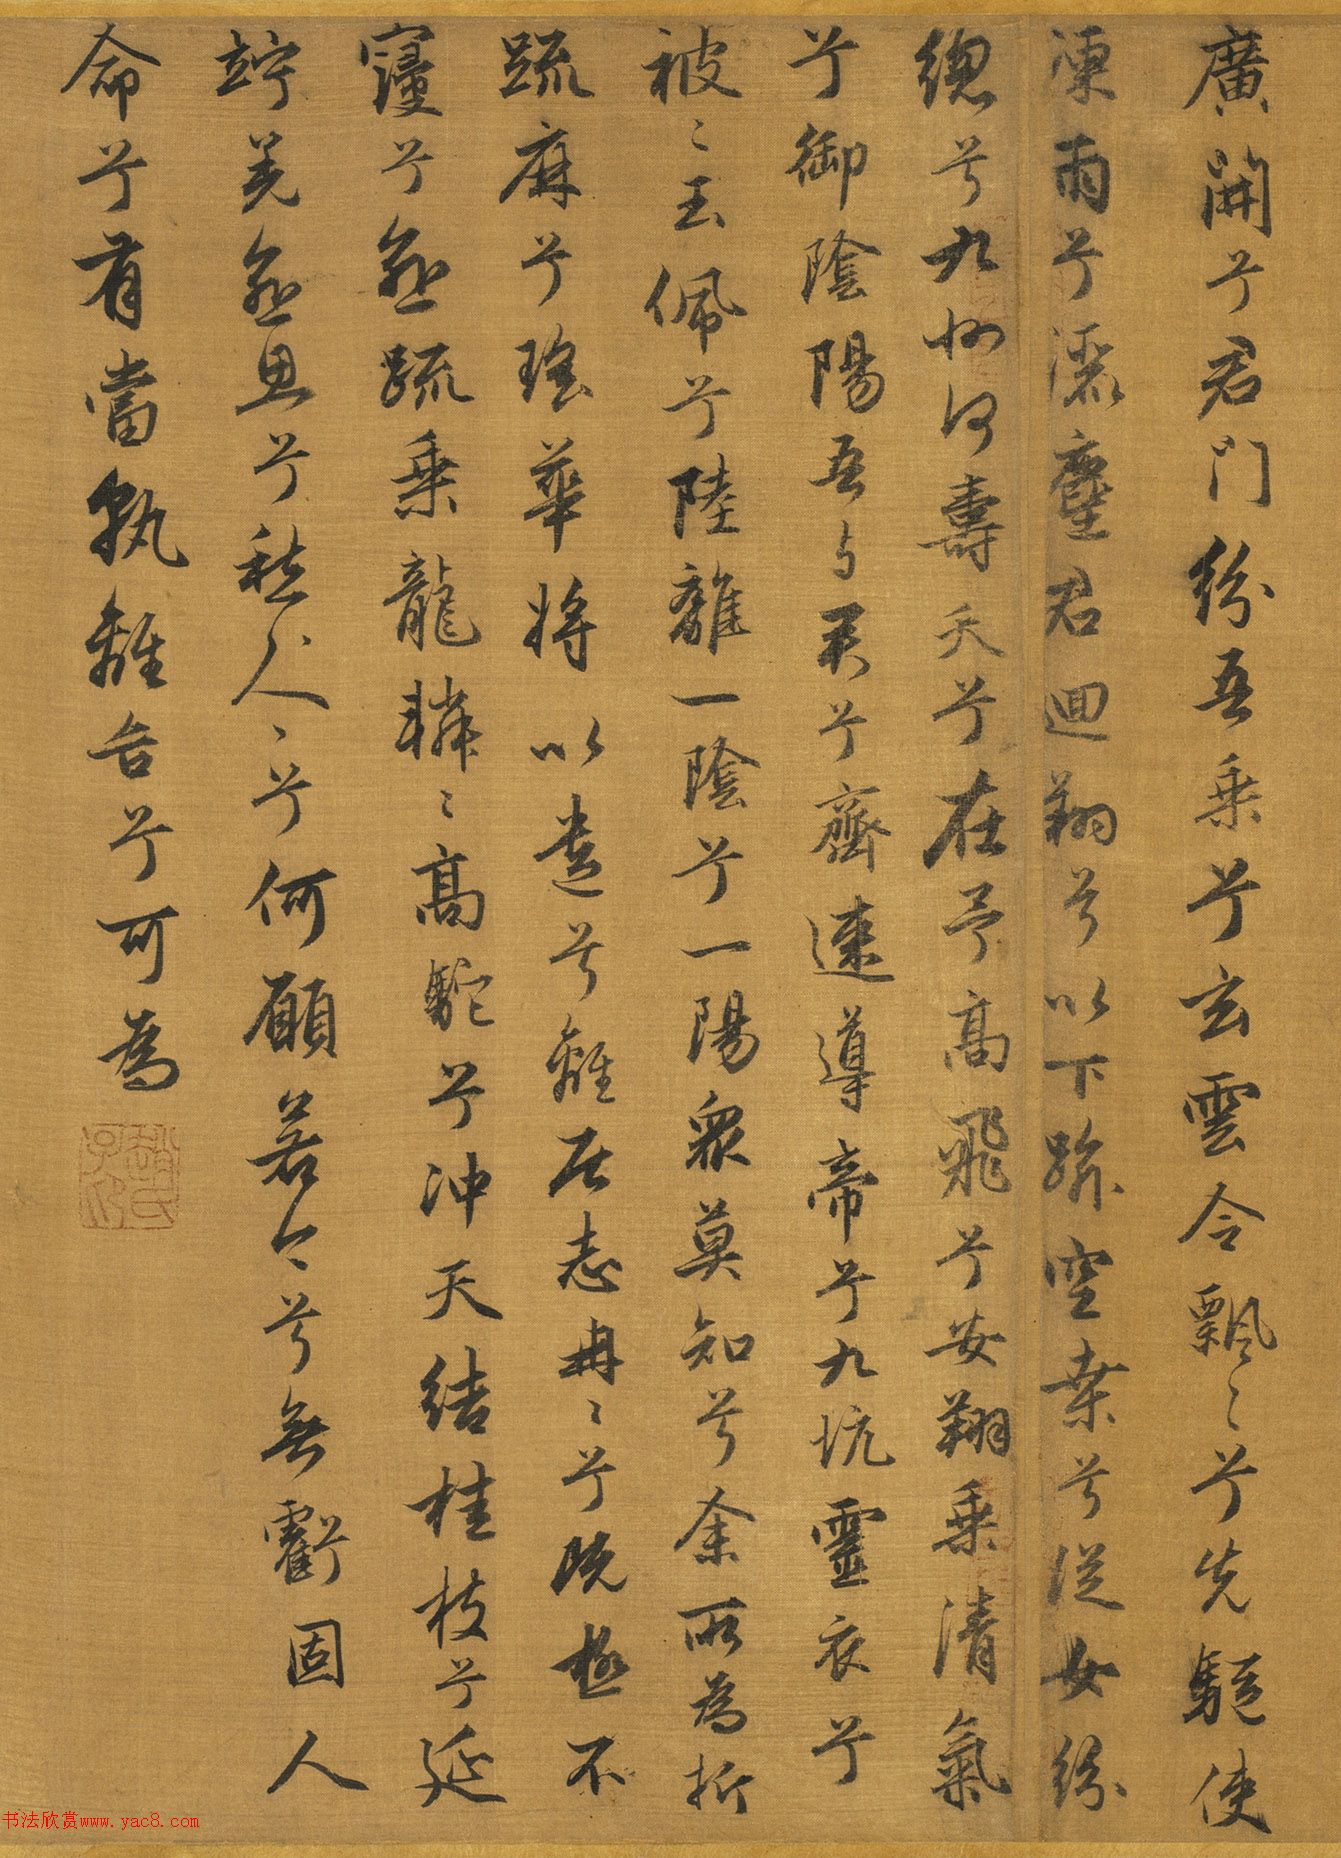 廣開兮君門紛吾乗兮玄雲令飄〻兮先駈使
凍雨兮灑塵君迴翔兮以下踰空桒兮従女紛
緫兮九州何壽夭兮在予高飛兮安翔乗清氣
兮御陰陽吾与君兮齊速導帝兮九坑靈衣兮
被〻玉佩兮陸離一陰兮一陽衆莫知兮余所為折
疏麻兮瑤華將以遺兮離居志冉〻兮既極不
寖兮愈疏乗龍轔〻高駝兮冲天結桂枝兮延
竚羌愈思兮愁人〻兮何願若今兮無虧固人
命兮有當孰離合兮可為
趙氏子昂
书法欣赏www.yac8.com